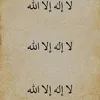 لا إله إلا الله
لا إله إلا الله
لا إله إلا الله